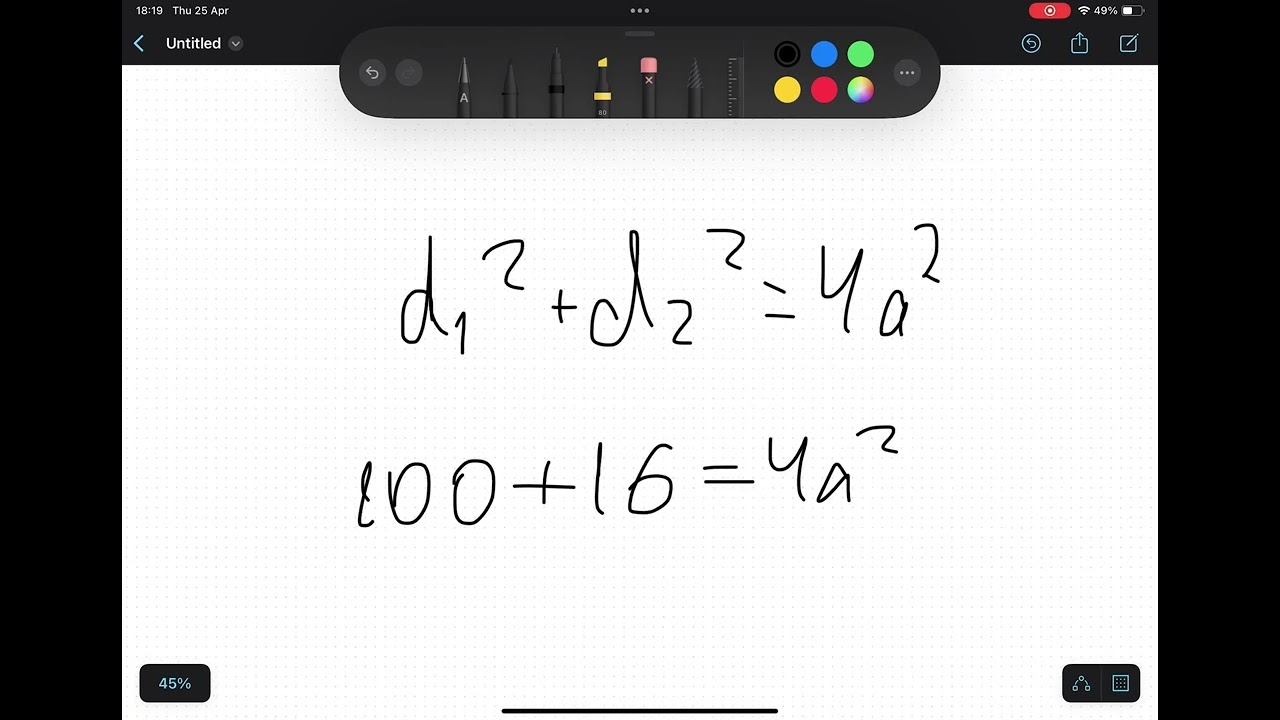 18:19 Thu 25 Apr
49%
Untitled
A
80
d₁² + d₂² = 4a²
100 + 16 = 4a²
45%